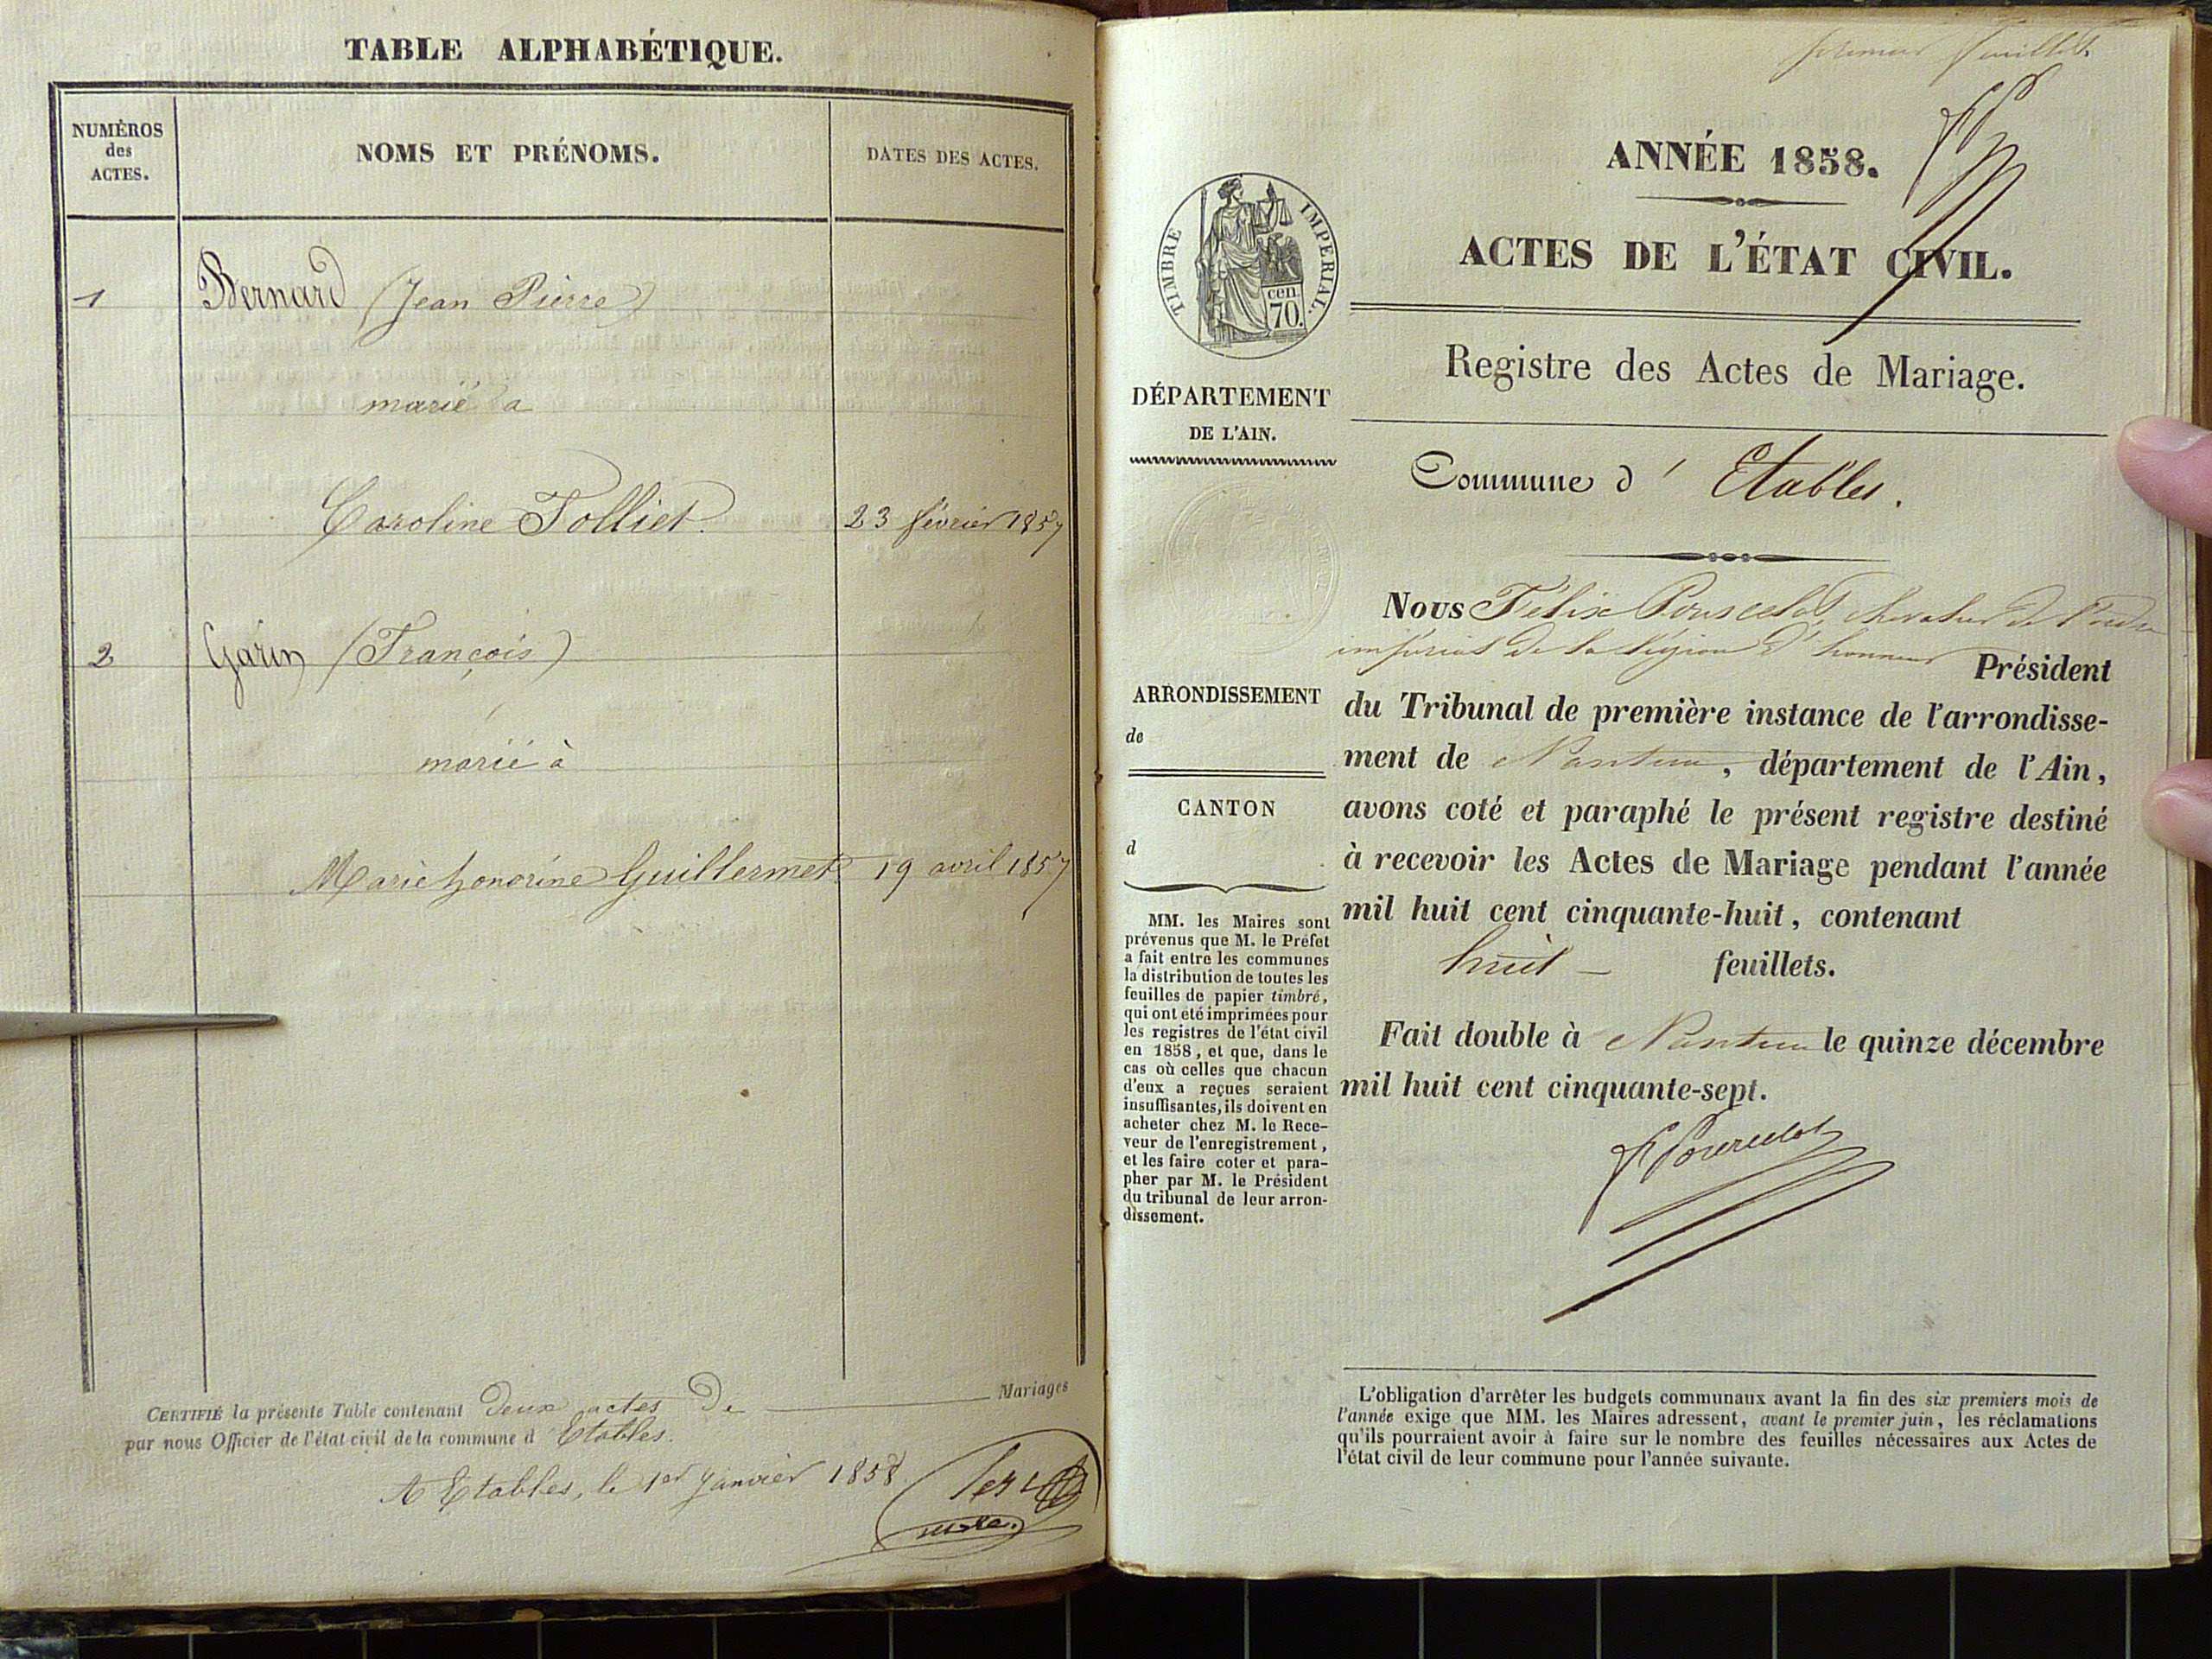 TABLE ALPHABÉTIQUE.
NUMÉROS
des
ACTES.
NOMS ET PRÉNOMS.
DATES DES ACTES.
1 Bernard (Jean Pierre)
marié à
Caroline Tolliet. 23 février 1857
2 Garin (François)
marié à
Marie honorine Guillermet. 19 avril 1857
CERTIFIÉ la présente Table contenant Deux actes De Mariages
par nous Officier de l'état civil de la commune d Etables.
A Etables, le 1er Janvier 1858
premier feuillet.
ANNÉE 1858.
ACTES DE L'ÉTAT CIVIL.
Registre des Actes de Mariage.
Commune d' Etables.
TIMBRE IMPERIAL.
cen.
70.
DÉPARTEMENT
DE L'AIN.
ARRONDISSEMENT
de
CANTON
d
MM. les Maires sont
prévenus que M. le Préfet
a fait entre les communes
la distribution de toutes les
feuilles de papier timbré,
qui ont été imprimées pour
les registres de l'état civil
en 1858, et que, dans le
cas où celles que chacun
d'eux a reçues seraient
insuffisantes, ils doivent en
acheter chez M. le Rece-
veur de l'enregistrement,
et les faire coter et para-
pher par M. le Président
du tribunal de leur arron-
dissement.
Nous Félix Pourcelot, chevalier de l'ordre
impérial de la Légion d'honneur Président
du Tribunal de première instance de l'arrondisse-
ment de Nantua, département de l'Ain,
avons coté et paraphé le présent registre destiné
à recevoir les Actes de Mariage pendant l'année
mil huit cent cinquante-huit, contenant
huit feuillets.
Fait double à Nantua le quinze décembre
mil huit cent cinquante-sept.
F Pourcelot
L'obligation d'arrêter les budgets communaux avant la fin des six premiers mois de
l'année exige que MM. les Maires adressent, avant le premier juin, les réclamations
qu'ils pourraient avoir à faire sur le nombre des feuilles nécessaires aux Actes de
l'état civil de leur commune pour l'année suivante.